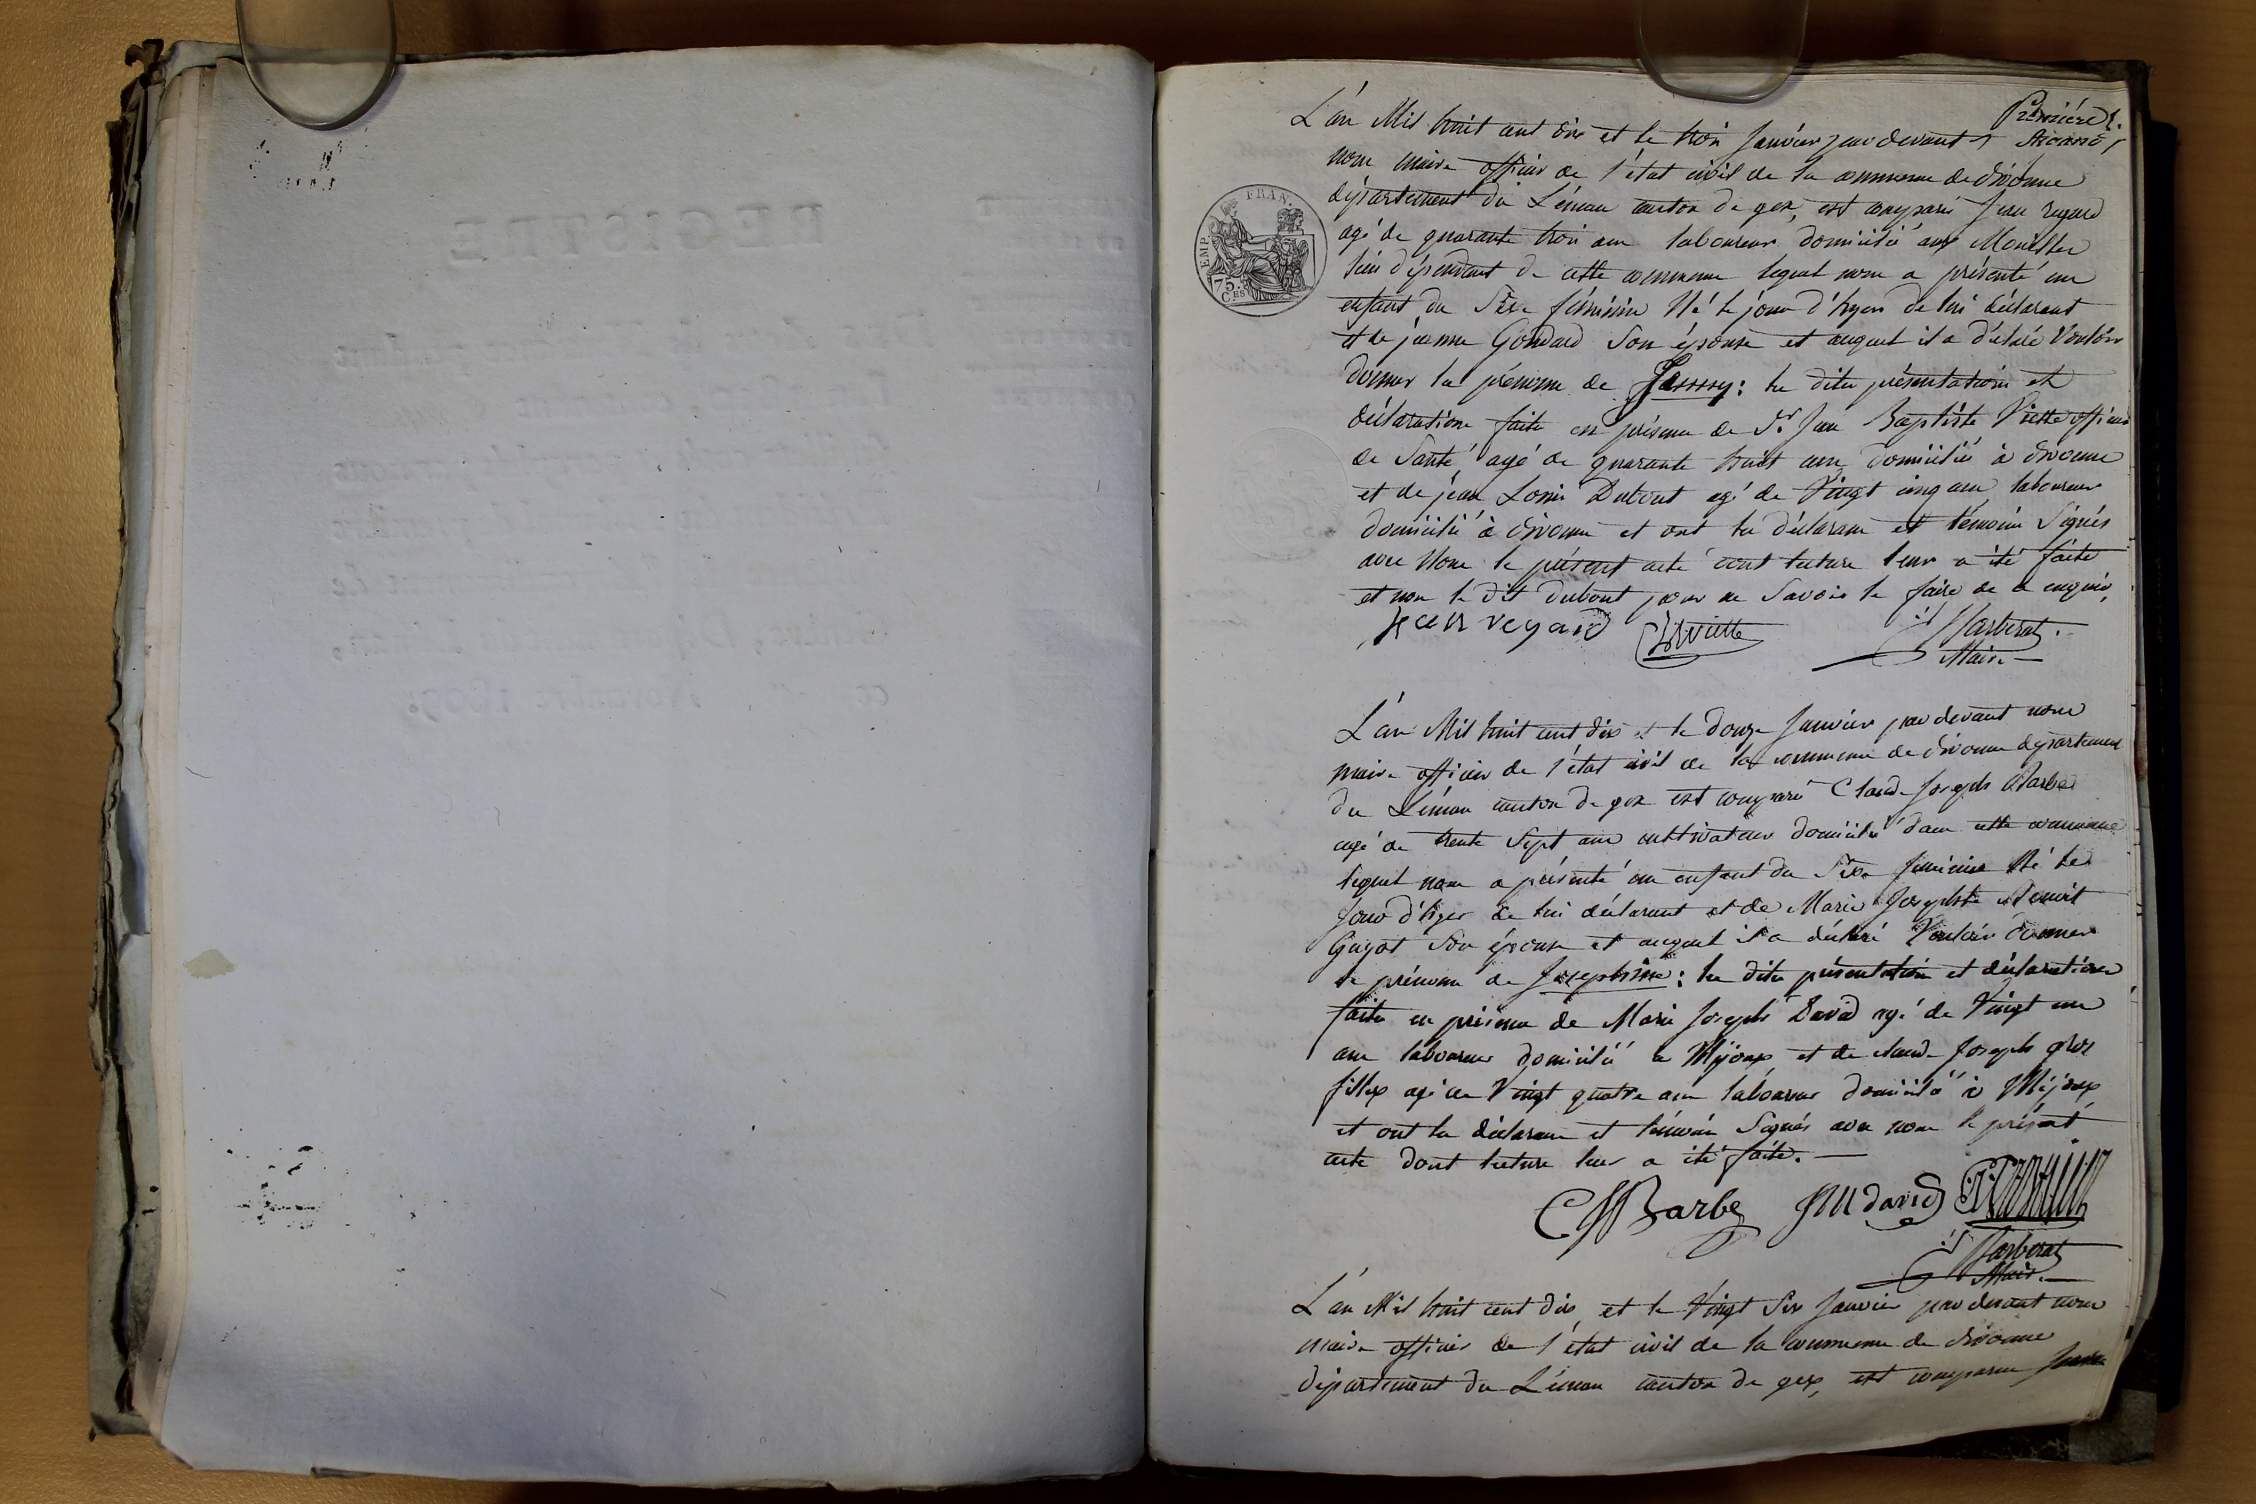 Première
L'an Mil huit cent dix et le trois Janvier par devant
nous maire officier de l'état civil de la commune de divonne
département du Léman canton de gex, est comparu Jean regard
agé de quarante trois ans laboureur domicilié aux
lieu dépendant de cette commune lequel nous a présenté un
enfant du Sèxe féminin Né le jour d'hyer de lui déclarant
et de jeanne Goudard Son épouse et auquel il a déclaré Vouloir
donner le prénom de Jenny: les dites présentation et
déclaration faite en présence de Sr. Jean Baptiste Viette officier
de Santé, agé de quarante huit ans domicilié à divonne
et de jean Louis Dubout agé de Vingt cinq ans laboureur
domicilié à divonne et ont les déclarant et témoins Signés
avec Nous le présent acte dont lecture leur a été faite
et non le dit dubout pour ne Savoir le faire de ce enquis,
jean regard Viette Barberat
Maire
FRAN.
EMP.
75.
CES
L'an Mil huit cent dix et le douze Janvier par devant nous
maire officier de l'état civil de la commune de divonne département
du Léman canton de gex est comparu Claude Joseph Barbe
agé de trente Sept ans cultivateur domicilié dans cette commune
lequel nous a présenté un enfant du Sèxe féminin Né le
jour d'hyer de lui déclarant et de Marie Josephte Benoit
Guyot Son épouse et auquel il a déclaré Vouloir donner
le prénom de Josephine: les dites présentation et déclaration
faite en présence de Marie Joseph David agé de Vingt un
ans laboureur domicilié a Mijoux et de claude Joseph gros
fillex agé de Vingt quatre ans laboureur domicilié à Mijoux
et ont les déclarant et témoins Signés avec nous le présent
acte dont lecture leur a été faite.
CJ Barbe JM david
Barberat
Maire
L'an Mil huit cent dix et le Vingt Six Janvier par devant nous
maire officier de l'état civil de la commune de divonne
département du Léman canton de gex, est comparu